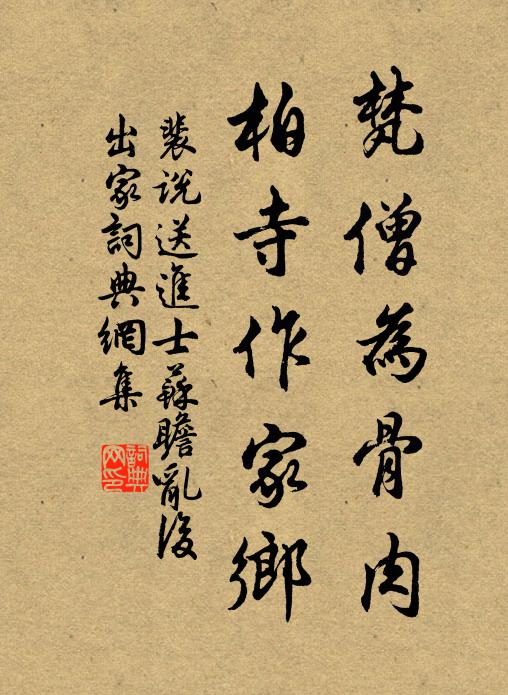 梵僧為骨肉
柏寺作家鄉
裴説送進士蘇瞻亂後
出家詞典網集
詞典網印